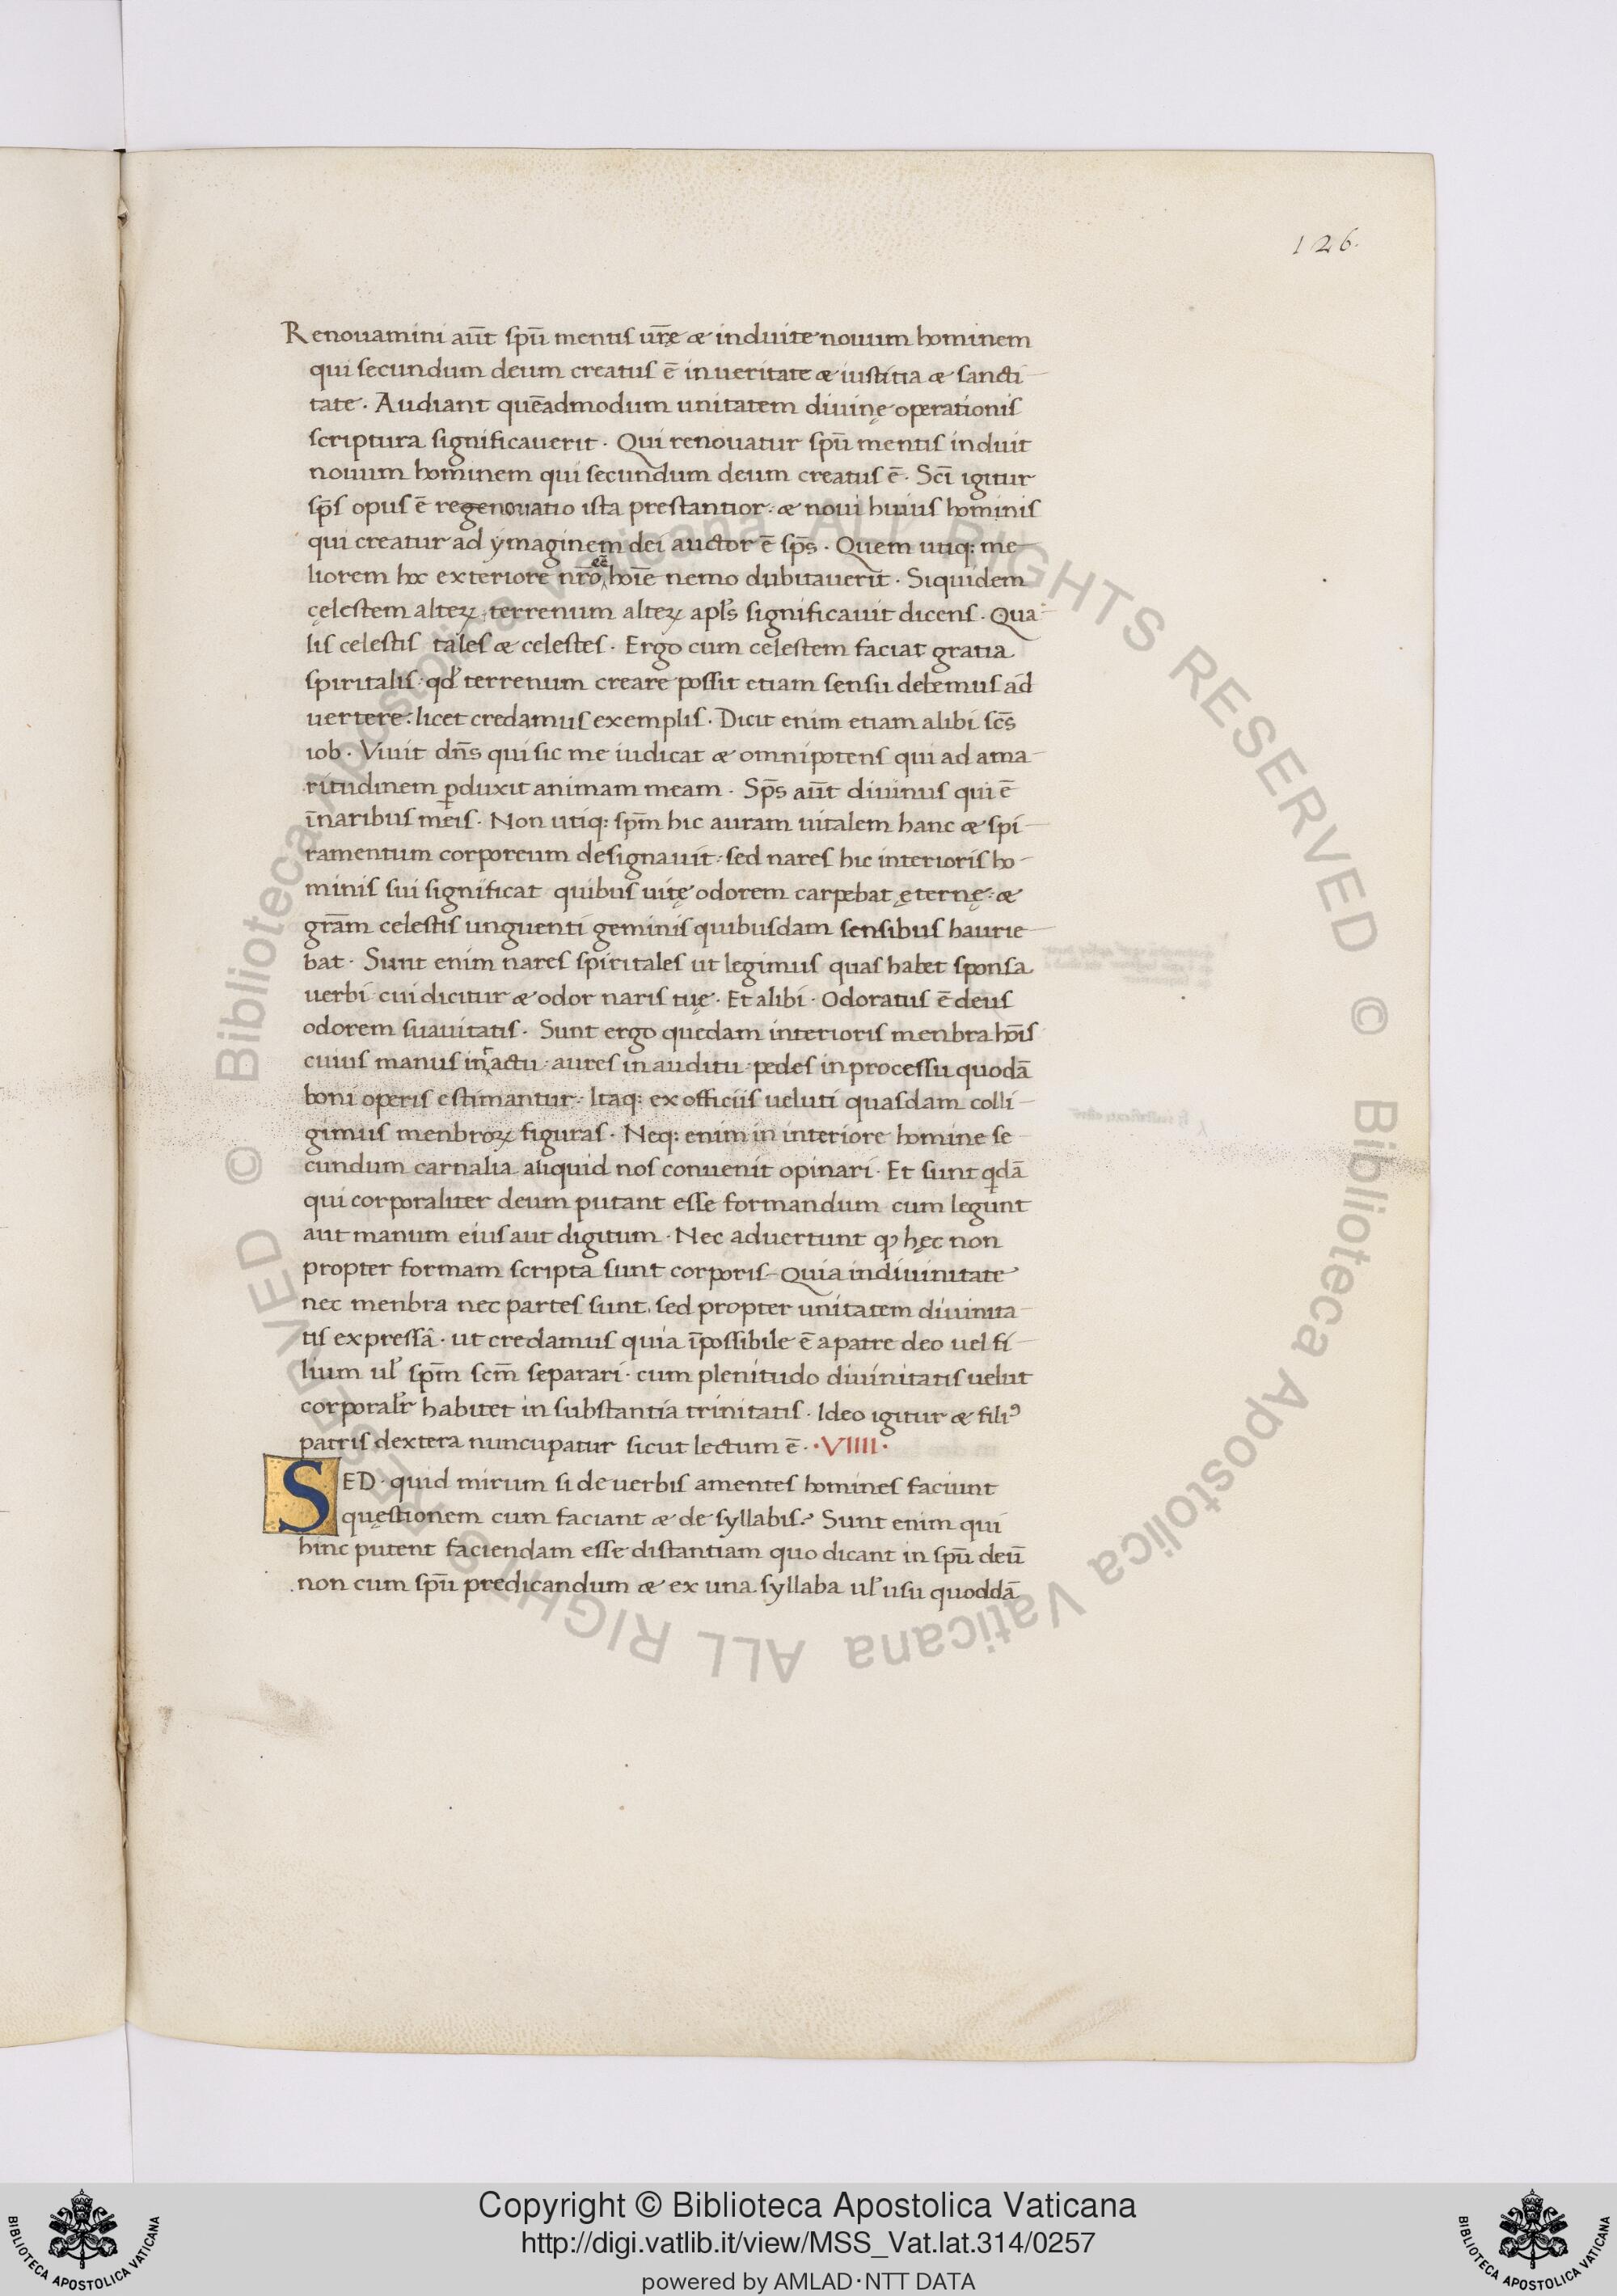 126.
Renouamini aūt spū mentis ur̄ę & induite nouum hominem
qui secundum deum creatus ē in ueritate & iustitia & sancti-
tate · Audiant quēadmodum unitatem diuinę operationis
scriptura significauerit · Qui renouatur spū mentis induit
nouum hominem qui secundum deum creatus ē · Sc̄i igitur
sp̄s opus ē regenouatio ista prestantior : & noui huius hominis
qui creatur ad ymaginem dei auctor ē sp̄s · Quem utiq: me-
liorem hoc exteriore nr̄o eē hoīe nemo dubitauerit · Siquidem
cęlestem alteꝝ · terrenum alteꝝ apl's significauit dicens · Qua-
lis celestis tales & celestes · Ergo cum celestem faciat gratia
spiritalis · qd' terrenum creare possit etiam sensu debemus ad
uertere : licet credamus exemplis · Dicit enim etiam alibi sc̄s
iob · Viuit dn̄s qui sic me iudicat & omnipotens qui ad ama-
ritudinem ꝑduxit animam meam · Sp̄s aūt diuinus qui ē
ī naribus meis · Non utiq: sp̄m hic auram uitalem hanc & spi-
ramentum corporeum designauit · sed nares hic interioris ho-
minis sui significat quibus uitę odorem carpebat ęternę : &
gr̄am celestis unguenti geminis quibusdam sensibus haurie-
bat · Sunt enim nares spiritales ut legimus quas habet sponsa
uerbi cui dicitur & odor naris tuę · Et alibi · Odoratus ē deus
odorem suauitatis · Sunt ergo quedam interioris menbra hoīs
cuius manus in actu · aures in auditu · pedes in processu quodā
boni operis estimantur · Itaq: ex officiis ueluti quasdam colli-
gimus menbroꝝ figuras · Neq: enim in interiore homine se-
cundum carnalia aliquid nos conuenit opinari · Et sunt qdā
qui corporaliter deum putant esse formandum cum legunt
aut manum eius aut digitum · Nec aduertunt ꝙ hęc non
propter formam scripta sunt corporis - Quia in diuinitate
nec menbra nec partes sunt · sed propter unitatem diuinita-
tis expressā · ut credamus quia īpossibile ē a patre deo uel fi-
lium ul' sp̄m scm̄ separari · cum plenitudo diuinitatis uelut
corporal'r habitet in substantia trinitatis · Ideo igitur & filiꝰ
patris dextera nuncupatur sicut lectum ē · · VIIII ·
SED · quid mirum si de uerbis amentes homines faciunt
questionem cum faciant & de syllabis ? Sunt enim qui
hinc putent faciendam esse distantiam quo dicant in spū deū
non cum spū predicandum & ex una syllaba ul' usu quoddā
© Biblioteca Apostolica Vaticana ALL RIGHTS RESERVED © Biblioteca Apostolica Vaticana ALL RIGHTS RESERVED
Copyright © Biblioteca Apostolica Vaticana
http://digi.vatlib.it/view/MSS_Vat.lat.314/0257
powered by AMLAD·NTT DATA
BIBLIOTECA APOSTOLICA VATICANA
BIBLIOTECA APOSTOLICA VATICANA